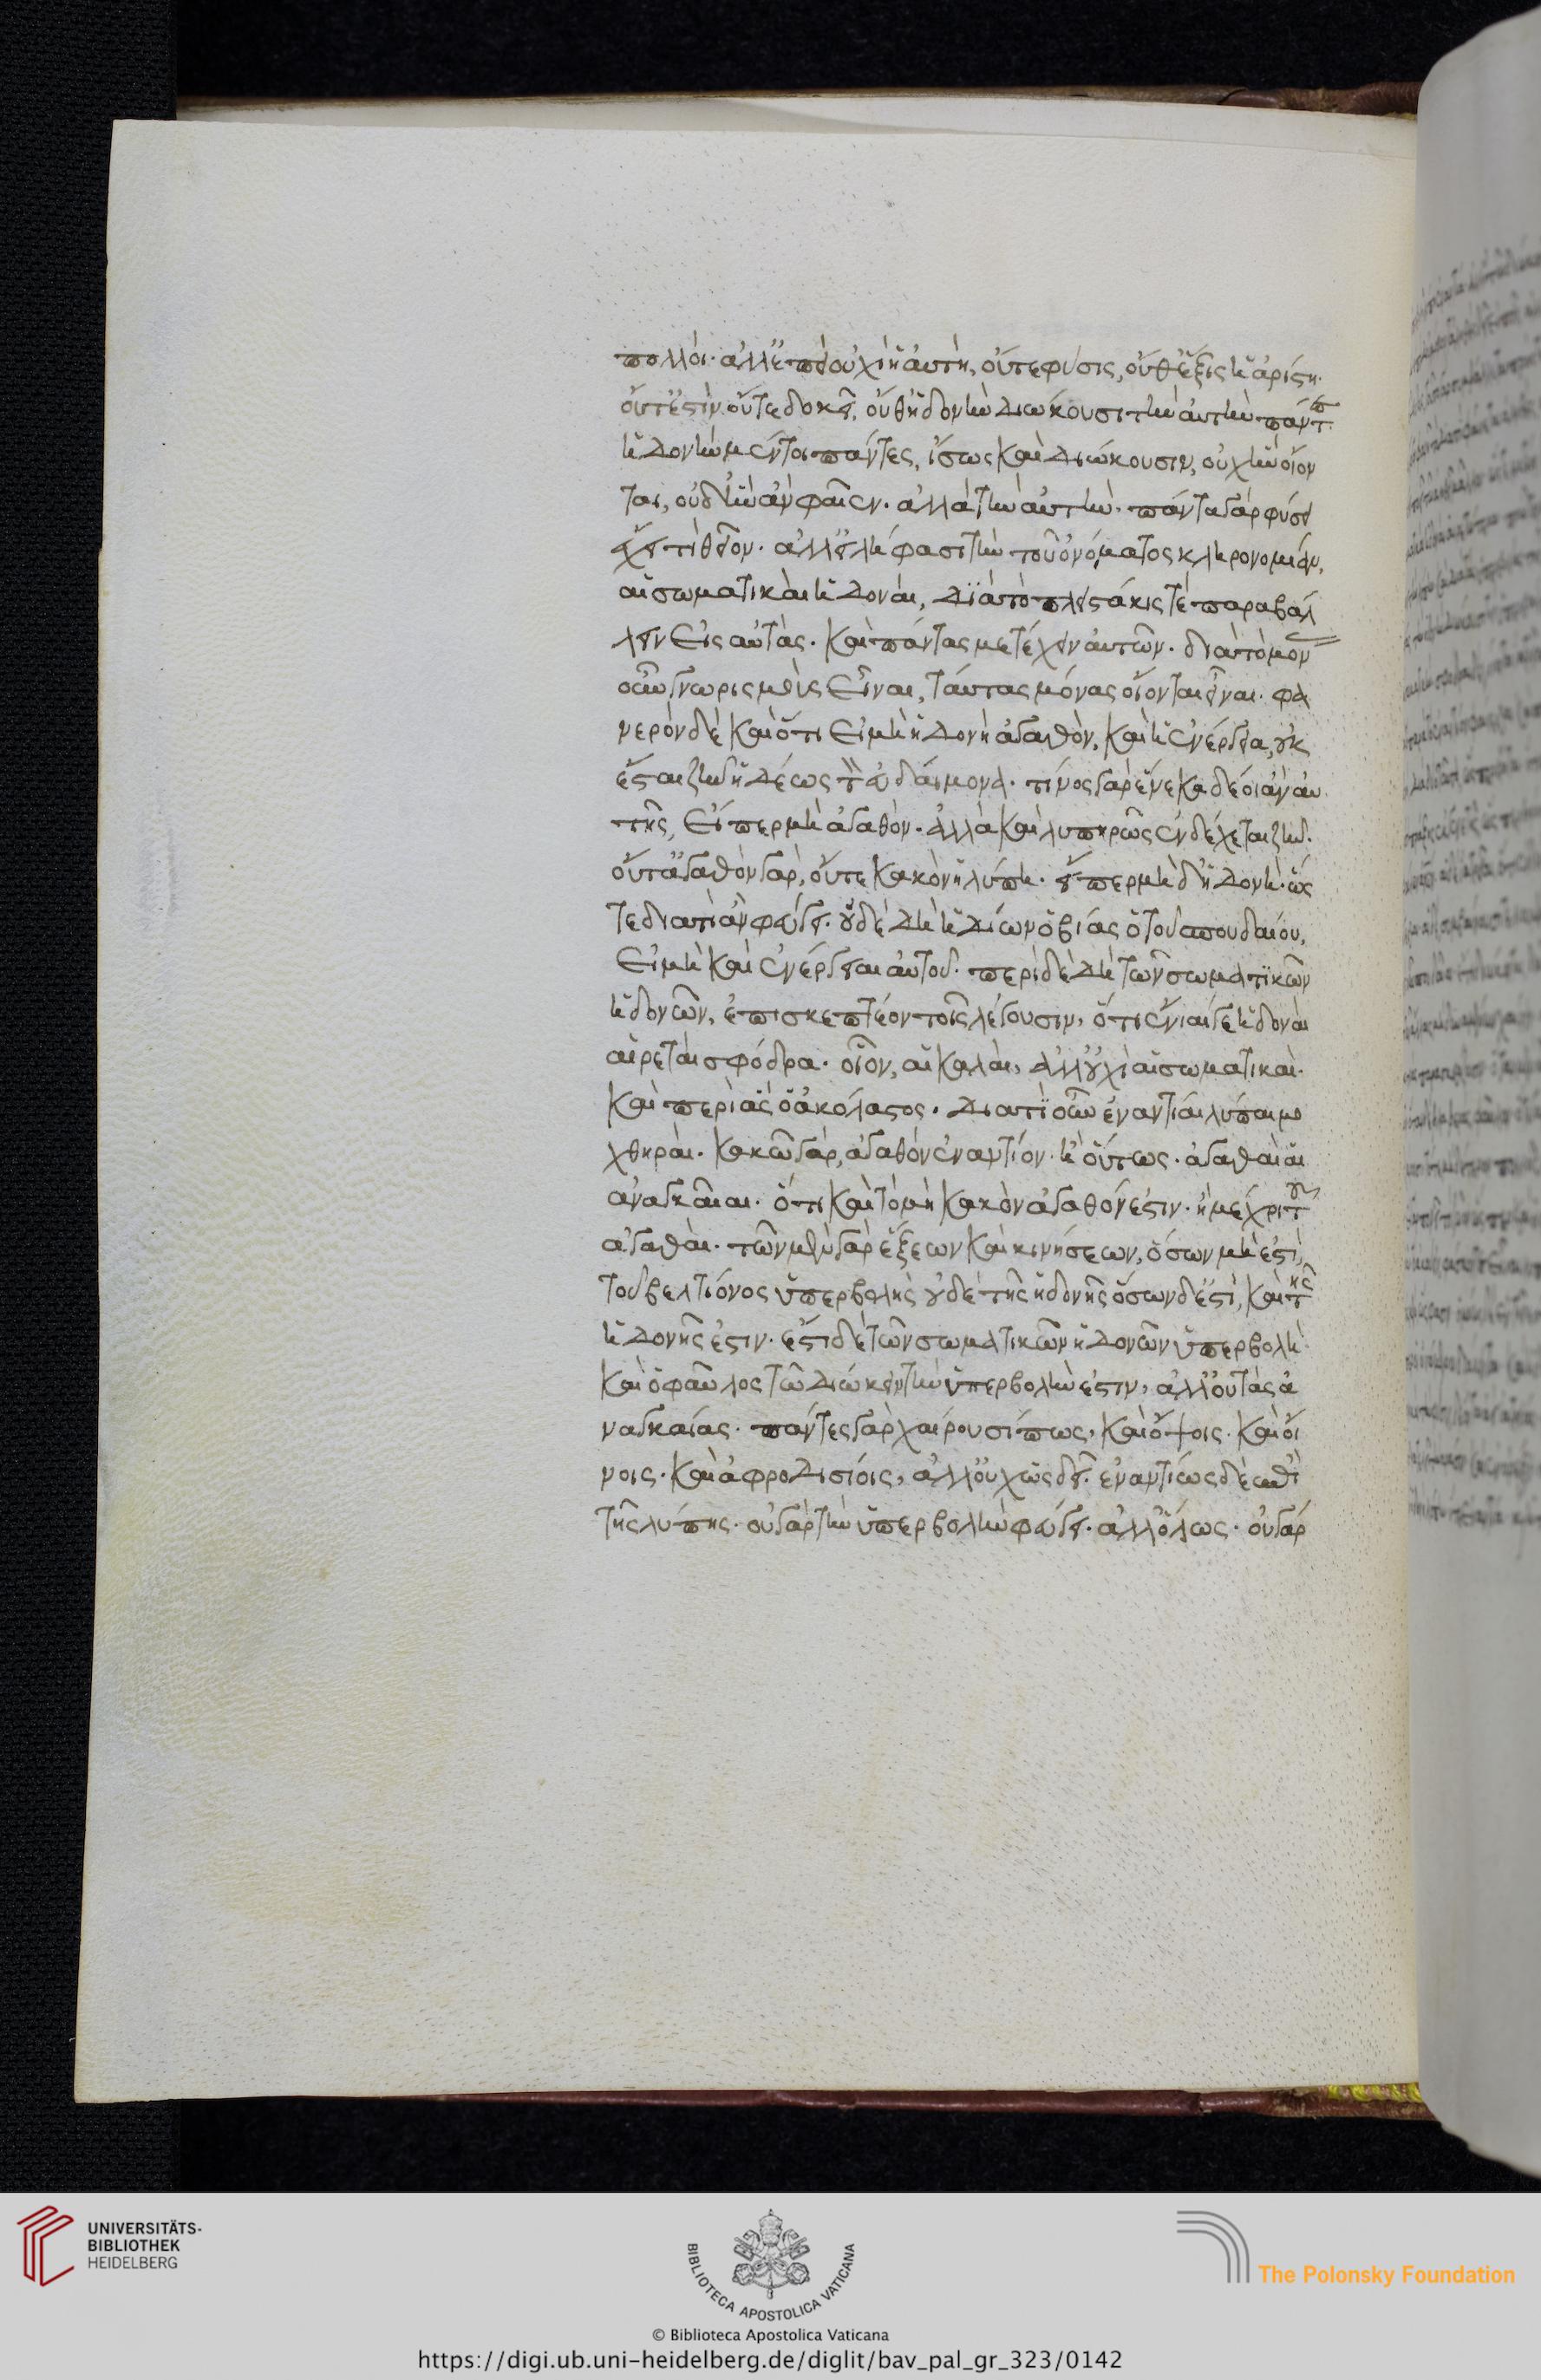 πολλοί. ἀλλ' ἐπεὶ οὐχ ἡ αὐτὴ, οὔτε φύσις, οὔθ' ἕξις ἡ ἀρίστη.
οὔτ' ἔστιν οὔτε δοκεῖ. οὐθ' ἡδονὴν διώκουσι τὴν αὐτὴν πάντες.
ἡδονὴν μέντοι πάντες, ἴσως καὶ διώκουσιν, οὐχ ἣν οἴον
ται, οὐδ' ἣν ἂν φαῖεν. ἀλλὰ τὴν αὐτήν. πάντα γὰρ φύσει
ἔχει τι θεῖον. ἀλλ' εἰλήφασι τὴν τοῦ ὀνόματος κληρονομίαν,
αἱ σωματικαὶ ἡδοναί, διὰ τὸ πλειστάκις τὲ παραβάλ
λειν εἰς αὐτάς. καὶ πάντας μετέχειν αὐτῶν. διὰ τὸ μόν
ας οὖν γνωρίμους εἶναι, ταύτας μόνας οἴονται εἶναι. φα
νερὸν δὲ καὶ ὅτι εἰ μὴ ἡδονὴ ἀγαθὸν, καὶ ἡ ἐνέργεια, οὐκ
ἔσται ζῆν ἡδέως τὸν εὐδαίμονα. τίνος γὰρ ἕνεκα δέοι ἂν αὐ
τῆς, εἴπερ μὴ ἀγαθόν. ἀλλὰ καὶ λυπηρῶς ἐνδέχεται ζῆν.
οὔτ' ἀγαθὸν γὰρ, οὔτε κακὸν ἡ λύπη. εἴπερ μηδ' ἡδονή. ὥς
τε διατί ἂν φεύγοι. οὐδὲ δὴ ἡδίων ὁ βίος ὁ τοῦ σπουδαίου,
εἰ μὴ καὶ ἐνέργειαι αὐτοῦ. περὶ δὲ δὴ τῶν σωματικῶν
ἡδονῶν, ἐπισκεπτέον τοῖς λέγουσιν, ὅτι ἔνιαι γε ἡδοναὶ
αἱρεταὶ σφόδρα. οἷον, αἱ καλαὶ, ἀλλ' οὐχὶ αἱ σωματικαὶ.
καὶ περὶ ἃς ὁ ἀκόλαστος. διατί οὖν ἐναντίαι λύπαι μο
χθηραί. κακῶ γὰρ, ἀγαθὸν ἐναντίον. ἢ οὕτως. ἀγαθαὶ αἱ
ἀναγκαῖαι. ὅτι καὶ τὸ μὴ κακὸν ἀγαθόν ἐστιν. ἢ μέχρι του
ἀγαθαί. τῶν μὲν γὰρ ἕξεων καὶ κινήσεων, ὅσων μή ἐστι
τοῦ βελτίονος ὑπερβολὴ οὐδὲ τῆς ἡδονῆς ὅσων δ' ἔστι, καὶ τῆς
ἡδονῆς ἐστιν. ἔστι δὲ τῶν σωματικῶν ἡδονῶν ὑπερβολή.
καὶ ὁ φαῦλος τῶ διώκειν τὴν ὑπερβολήν ἐστιν, ἀλλ' οὐ τὰς ἀ
ναγκαίας. πάντες γὰρ χαίρουσί πως, καὶ ὄψοις. καὶ οἴ
νοις. καὶ ἀφροδισίοις, ἀλλ' οὐχ ὡς δεῖ. ἐναντίως δὲ ἐπὶ
τῆς λύπης. οὐ γὰρ τὴν ὑπερβολὴν φεύγει. ἀλλ' ὅλως. οὐ γάρ
UNIVERSITÄTS-
BIBLIOTHEK
HEIDELBERG
BIBLIOTECA APOSTOLICA VATICANA
The Polonsky Foundation
© Biblioteca Apostolica Vaticana
https://digi.ub.uni-heidelberg.de/diglit/bav_pal_gr_323/0142